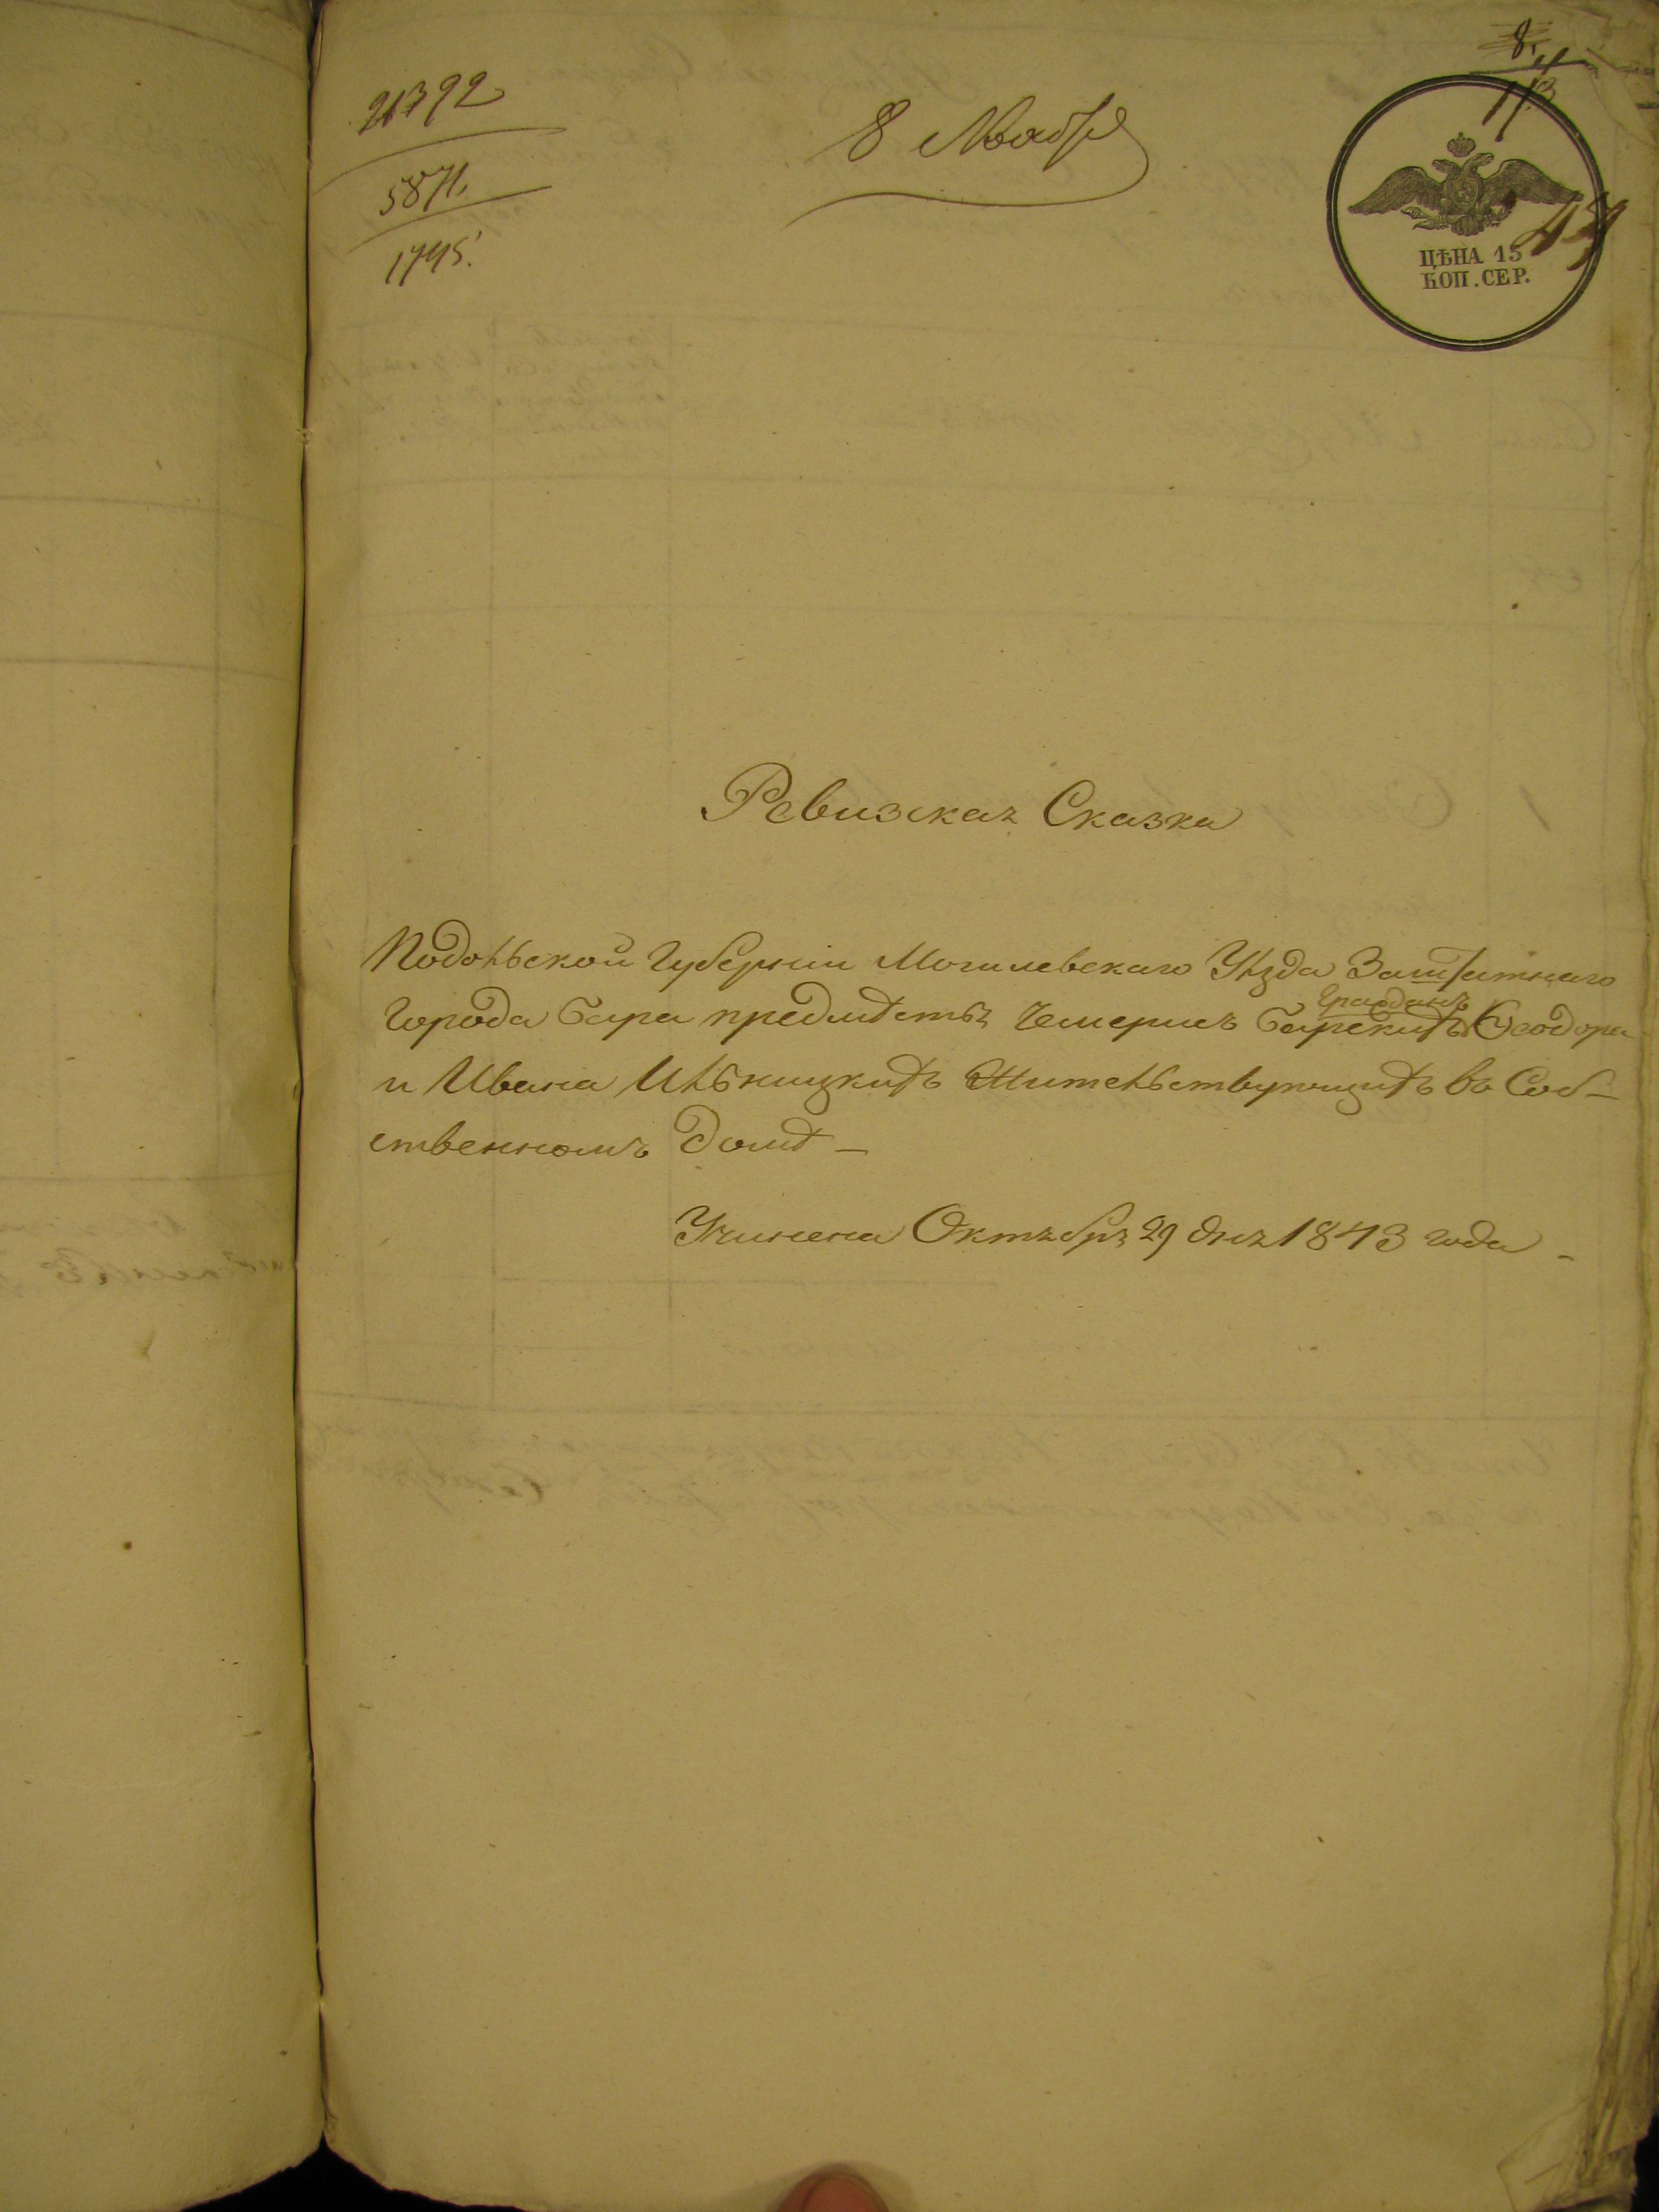 21792
5871.
1745.
8 Ноября
8.
ЦѢНА 15
КОП. СЕР.
Ревизская Сказка
Подольской Губерніи Могилевскаго Уѣзда Заштатнаго
Гражданъ
Города Бара предмѣстья Чемерисъ Барскихъ Ѳеодора
и Ивана Ильницкихъ Жительствующихъ въ Соб-
ственномъ Домѣ –
Учинена Октября 29 дня 1843 года –